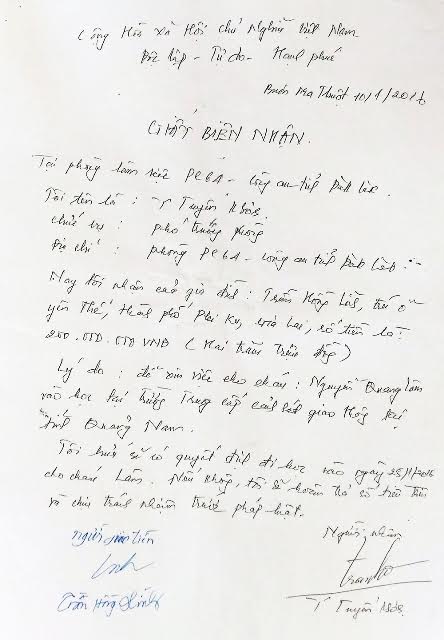 Cộng Hòa xã Hội chủ Nghĩa Việt Nam
Độc lập - Tự do - Hạnh phúc
Buôn Ma Thuột 10/1/2016
GIẤY BIÊN NHẬN
Tại phòng làm việc PC61 - công an tỉnh Đắk Lắk.
Tôi tên là : Tuyến
chức vụ : phó trưởng phòng
địa chỉ : phòng PC61 - công an tỉnh Đắk Lắk
Nay tôi nhận của gia đình : Trần Hồng trú ở
yên Thế, thành phố Plei Ku, Gia Lai, số tiền là:
200.000.000 VNĐ ( Hai trăm triệu đồng )
Lý do : để xin việc cho cháu : Nguyễn Quang Lâm
vào học tại trường Trung cấp cảnh sát giao thông tại
tỉnh Quảng Nam.
Tôi hứa sẽ có quyết định đi học vào ngày 25/1/2016
cho cháu Lâm. Nếu không, tôi sẽ hoàn trả số tiền trên
và chịu trách nhiệm trước pháp luật.
Người giao tiền
Người nhận
Trần Hồng
Tuyến